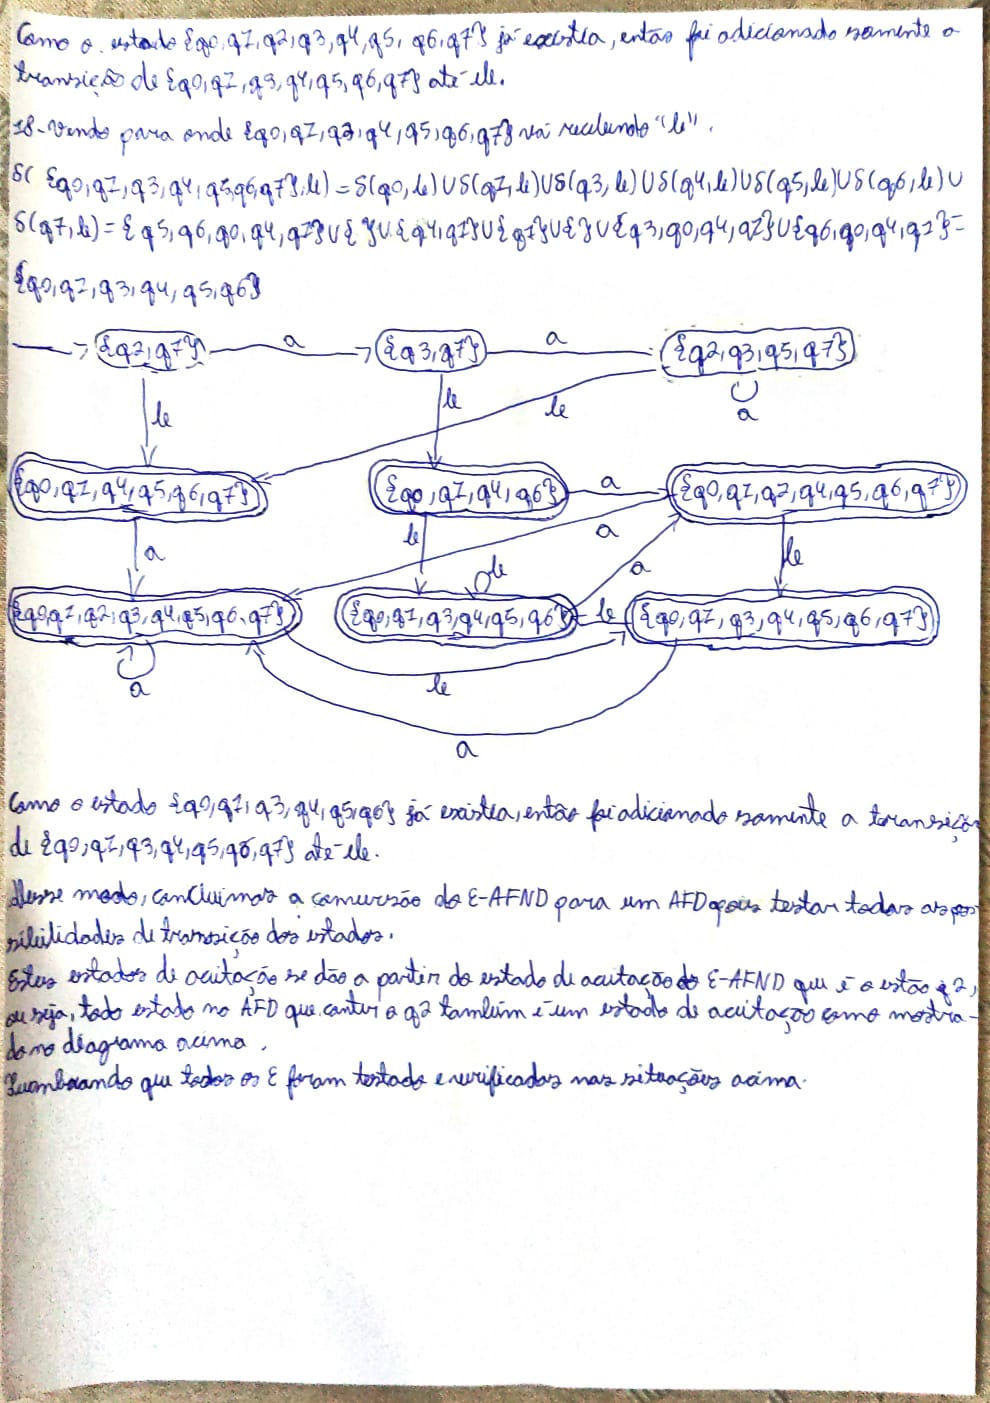 Como o estado {q0,q1,q2,q3,q4,q5,q6,q7} já existia, então foi adicionado somente a
transição de {q0,q1,q3,q4,q5,q6,q7} até ele.
18-Vendo para onde {q0,q1,q3,q4,q5,q6,q7} vá recebendo "b".
δ({q0,q1,q3,q4,q5,q6,q7},b)=δ(q0,b)∪δ(q1,b)∪δ(q3,b)∪δ(q4,b)∪δ(q5,b)∪δ(q6,b)∪
δ(q7,b)={q5,q6,q0,q4,q1}∪{ }∪{q4,q1}∪{q1}∪{ }∪{q3,q0,q4,q1}∪{q6,q0,q4,q1}=
{q0,q1,q3,q4,q5,q6}
{q2,q7} a {q3,q7} a {q2,q3,q5,q7}
b b b a
{q0,q1,q4,q5,q6,q7} {q0,q1,q4,q6} a {q0,q1,q2,q4,q5,q6,q7}
a b a a b
b
{q0,q1,q2,q3,q4,q5,q6,q7} {q0,q1,q3,q4,q5,q6} b {q0,q1,q3,q4,q5,q6,q7}
a b
a
Como o estado {q0,q1,q3,q4,q5,q6} já existia, então foi adicionado somente a transição
de {q0,q1,q3,q4,q5,q6,q7} até ele.
Desse modo, concluimos a conversão do E-AFND para um AFD após testar todas as pos-
sibilidades de transição dos estados.
Estes estados de aceitação se dão a partir do estado de aceitação do E-AFND que é o estão q2,
ou seja, todo estado no AFD que conter o q2 também é um estado de aceitação como mostra-
do no diagrama acima.
que todos os E foram testado e verificados nas situações acima.